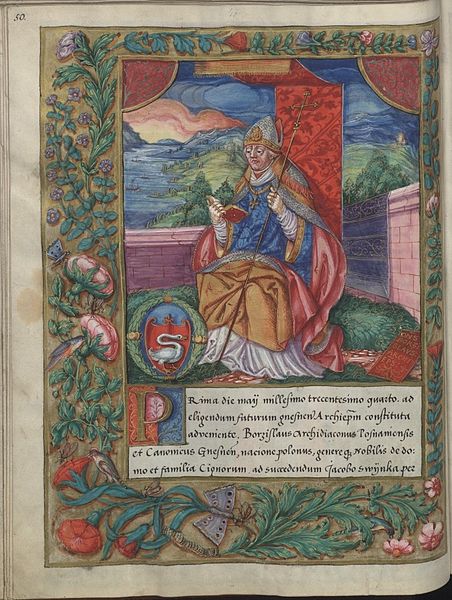 50.
PRima die maij millesimo trecentesimo quarto. ad
eligendum futurum gnesneń Archiepm constituta
advemente, Borzislaus Archidiaconus Posnaniensis
et Canonicus Gnesneń, nacione polonus, genereq; Nobilis de do,
mo et familia Cignorum, ad succedendum Jacobo swynka per